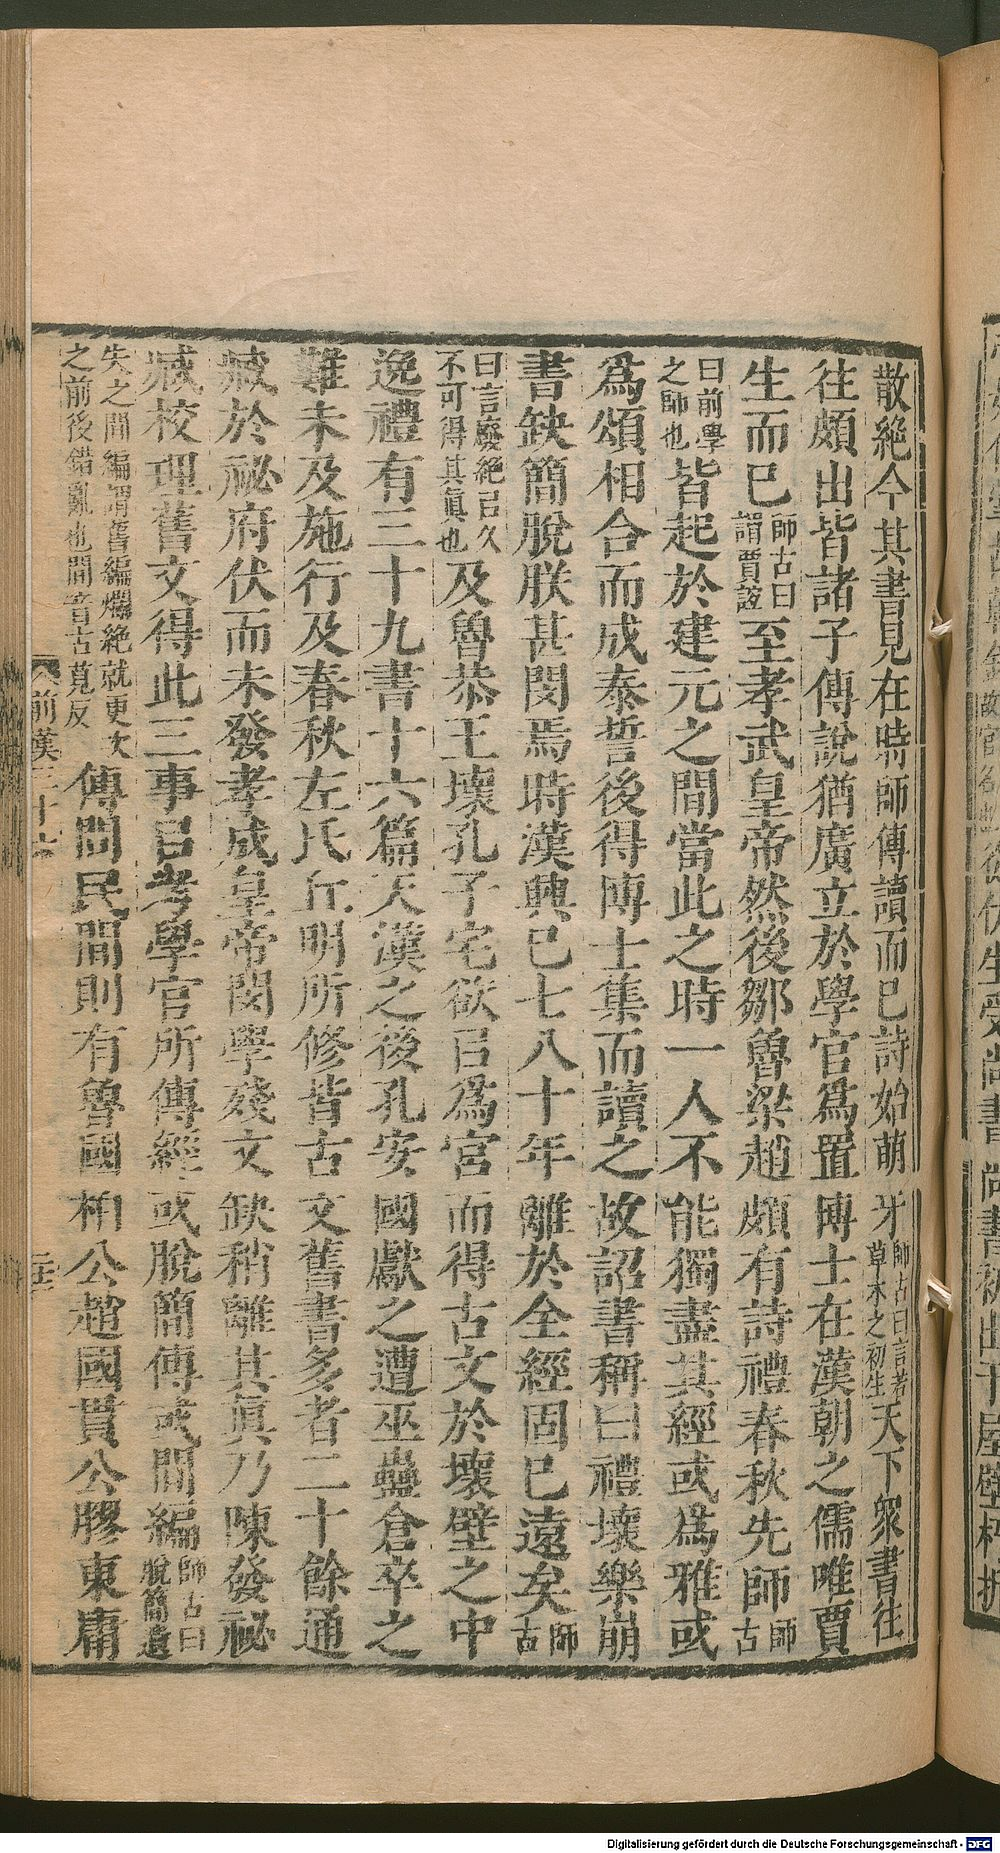 散絶今其書見在時師傳讀而已詩始萌牙師古曰言若草木之初生天下衆書往
往頗出皆諸子傳說猶廣立於學官爲置博士在漢朝之儒唯賈
生而已師古曰謂賈誼至孝武皇帝然後鄒魯梁趙頗有詩禮春秋先師師古
曰前學之師也皆起於建元之間當此之時一人不能獨盡其經或爲雅或
爲頌相合而成泰誓後得博士集而讀之故詔書稱曰禮壞樂崩
書缺簡脫朕甚閔焉時漢興已七八十年離於全經固已遠矣師古
曰言廢絶已久不可得其眞也及魯恭王壞孔子宅欲㠯爲宮而得古文於壞壁之中
逸禮有三十九書十六篇天漢之後孔安國獻之遭巫蠱倉卒之
難未及施行及春秋左氏丘明所修皆古文舊書多者二十餘通
臧於祕府伏而未發孝成皇帝閔學殘文缺稍離其眞乃陳發祕
臧校理舊文得此三事㠯考學官所傳經或脫簡傳或間編師古曰脫簡遺
失之間編謂舊編爛絶就更次之前後錯亂也間音古莧反傳問民間則有魯國桓公趙國貫公膠東庸
前漢三十六
Digitalisierung gefördert durch die Deutsche Forschungsgemeinschaft - DFG